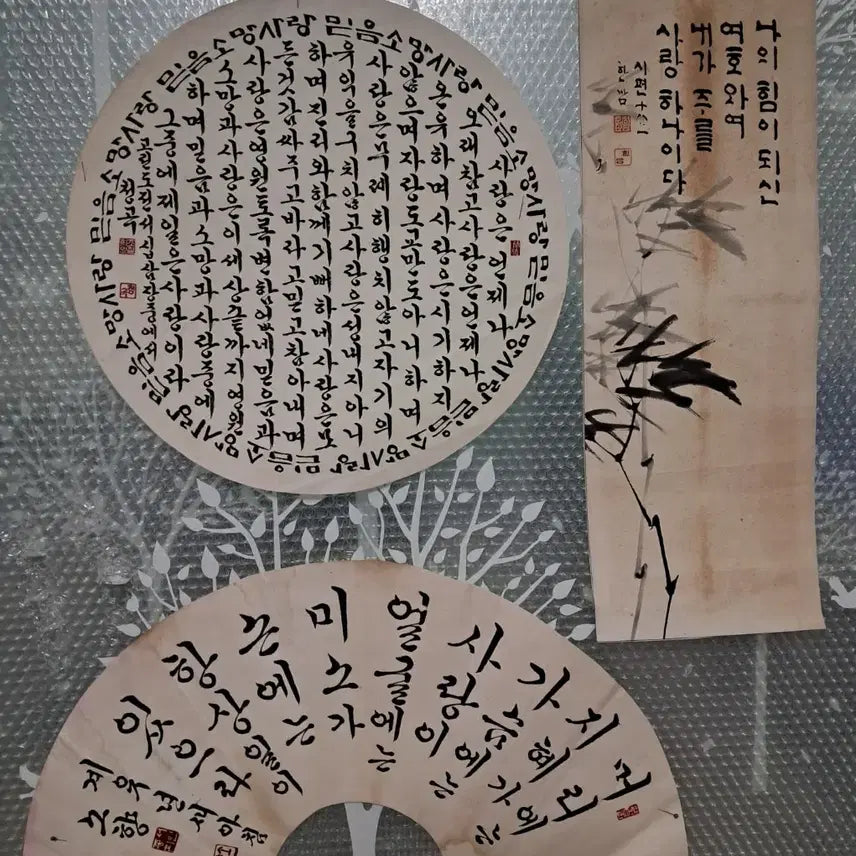 믿음소망사랑 믿음소망사랑 믿음소망사랑 믿음소망사랑 믿음소망사랑 믿음소망사랑 믿음소망사랑 믿음소망사랑
사랑은 언제나
오래참고사랑은언제나
온유하며사랑은시기하지
않으며자랑도교만도아니하며
사랑은무례히행치않고자기의
유익을구치않고사랑은성내지아니
하며진리와함께기뻐하네사랑은모
든것감싸주고바라고믿고참아내며
사랑은영원토록변함없네믿음과
소망과사랑은이세상끝까지영원
하며믿음과소망과사랑중에
그중에제일은사랑이라
고린도전서십삼장중에서
청곡
나의 힘이 되신
여호와여
내가 주를
사랑 하나이다
시편
머리에는
지혜가
가슴에는
사랑이
얼굴에는
미소가
손에는
항상일이
계유년 새아침
소행